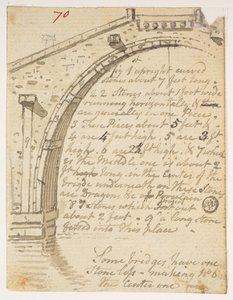 70
by 4 upright curved
Stones about 7 feet long
22 Stones about 1 foot wide
running horizontally &
are generally in one Piece
3 three Pieces about 5 feet
h are 4 high, 5 are 3 f
high. 6 are 2 high, & 7 which
is the Middle one is about 2
f long in the Center of the
bridge underneath on these Stone
are Dragons &c
77 Stones which
about 2 feet 9 a long stone
into this place
Some bridges have one
Stone less - making No 6
the Center one